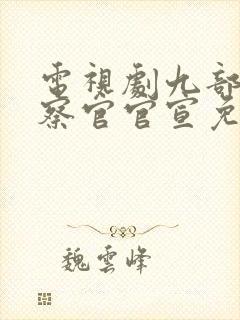 電視劇九部
察官官宣免
魏雲峰